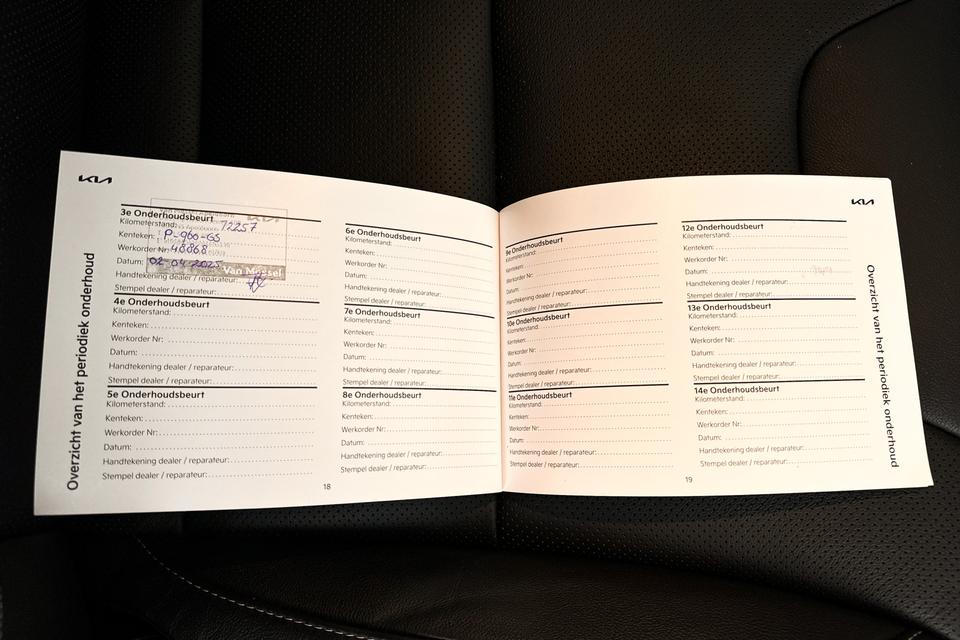 KIA
3e Onderhoudsbeurt
Kilometerstand: 72257
Kenteken: P-960-GS
Werkorder Nr: 48868
Datum: 02-04-2025
Van Mossel
Handtekening dealer / reparateur:
Stempel dealer / reparateur:
4e Onderhoudsbeurt
Kilometerstand:
Kenteken:
Werkorder Nr:
Datum:
Handtekening dealer / reparateur:
Stempel dealer / reparateur:
5e Onderhoudsbeurt
Kilometerstand:
Kenteken:
Werkorder Nr:
Datum:
Handtekening dealer / reparateur:
Stempel dealer / reparateur:
6e Onderhoudsbeurt
Kilometerstand:
Kenteken:
Werkorder Nr:
Datum:
Handtekening dealer / reparateur:
Stempel dealer / reparateur:
7e Onderhoudsbeurt
Kilometerstand:
Kenteken:
Werkorder Nr:
Datum:
Handtekening dealer / reparateur:
Stempel dealer / reparateur:
8e Onderhoudsbeurt
Kilometerstand:
Kenteken:
Werkorder Nr:
Datum:
Handtekening dealer / reparateur:
Stempel dealer / reparateur:
Overzicht van het periodiek onderhoud
18
KIA
9e Onderhoudsbeurt
Kilometerstand:
Kenteken:
Werkorder Nr:
Datum:
Handtekening dealer / reparateur:
Stempel dealer / reparateur:
10e Onderhoudsbeurt
Kilometerstand:
Kenteken:
Werkorder Nr:
Datum:
Handtekening dealer / reparateur:
Stempel dealer / reparateur:
11e Onderhoudsbeurt
Kilometerstand:
Kenteken:
Werkorder Nr:
Datum:
Handtekening dealer / reparateur:
Stempel dealer / reparateur:
12e Onderhoudsbeurt
Kilometerstand:
Kenteken:
Werkorder Nr:
Datum:
Handtekening dealer / reparateur:
Stempel dealer / reparateur:
13e Onderhoudsbeurt
Kilometerstand:
Kenteken:
Werkorder Nr:
Datum:
Handtekening dealer / reparateur:
Stempel dealer / reparateur:
14e Onderhoudsbeurt
Kilometerstand:
Kenteken:
Werkorder Nr:
Datum:
Handtekening dealer / reparateur:
Stempel dealer / reparateur:
Overzicht van het periodiek onderhoud
19